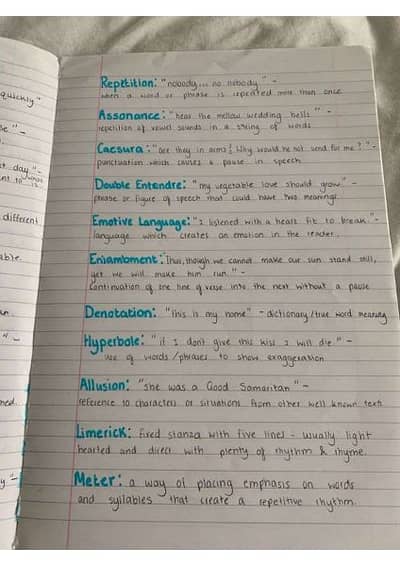 quickly"
se" -
t day" -
nt to is
different
able.
on.
" -
med.
y" -
Repetition: "nobody... no nobody" -
when a word or phrase is repeated more than once
Assonance: "hear the mellow wedding bells" -
repetition of vowel sounds in a string of words
Caesura: "are they in arms? Why would he not send for me?" -
punctuation which causes a pause in speech
Double Entendre: "my vegetable love should grow" -
phrase or figure of speech that could have two meanings
Emotive Language: "I listened with a heart fit to break." -
language which creates an emotion in the reader.
Enjambment: "Thus, though we cannot make our sun stand still,
yet we will make him run" -
Continuation of one line of verse into the next without a pause
Denotation: "This is my home" - dictionary/true word meaning
Hyperbole: "if I don't give this kiss I will die" -
use of words/phrases to show exaggeration
Allusion: "she was a Good Samaritan" -
reference to characters or situations from other well known texts.
Limerick: fixed stanza with five lines - usually light
hearted and direct with plenty of rhythm & rhyme.
Meter: a way of placing emphasis on words
and syllables that create a repetitive rhythm.